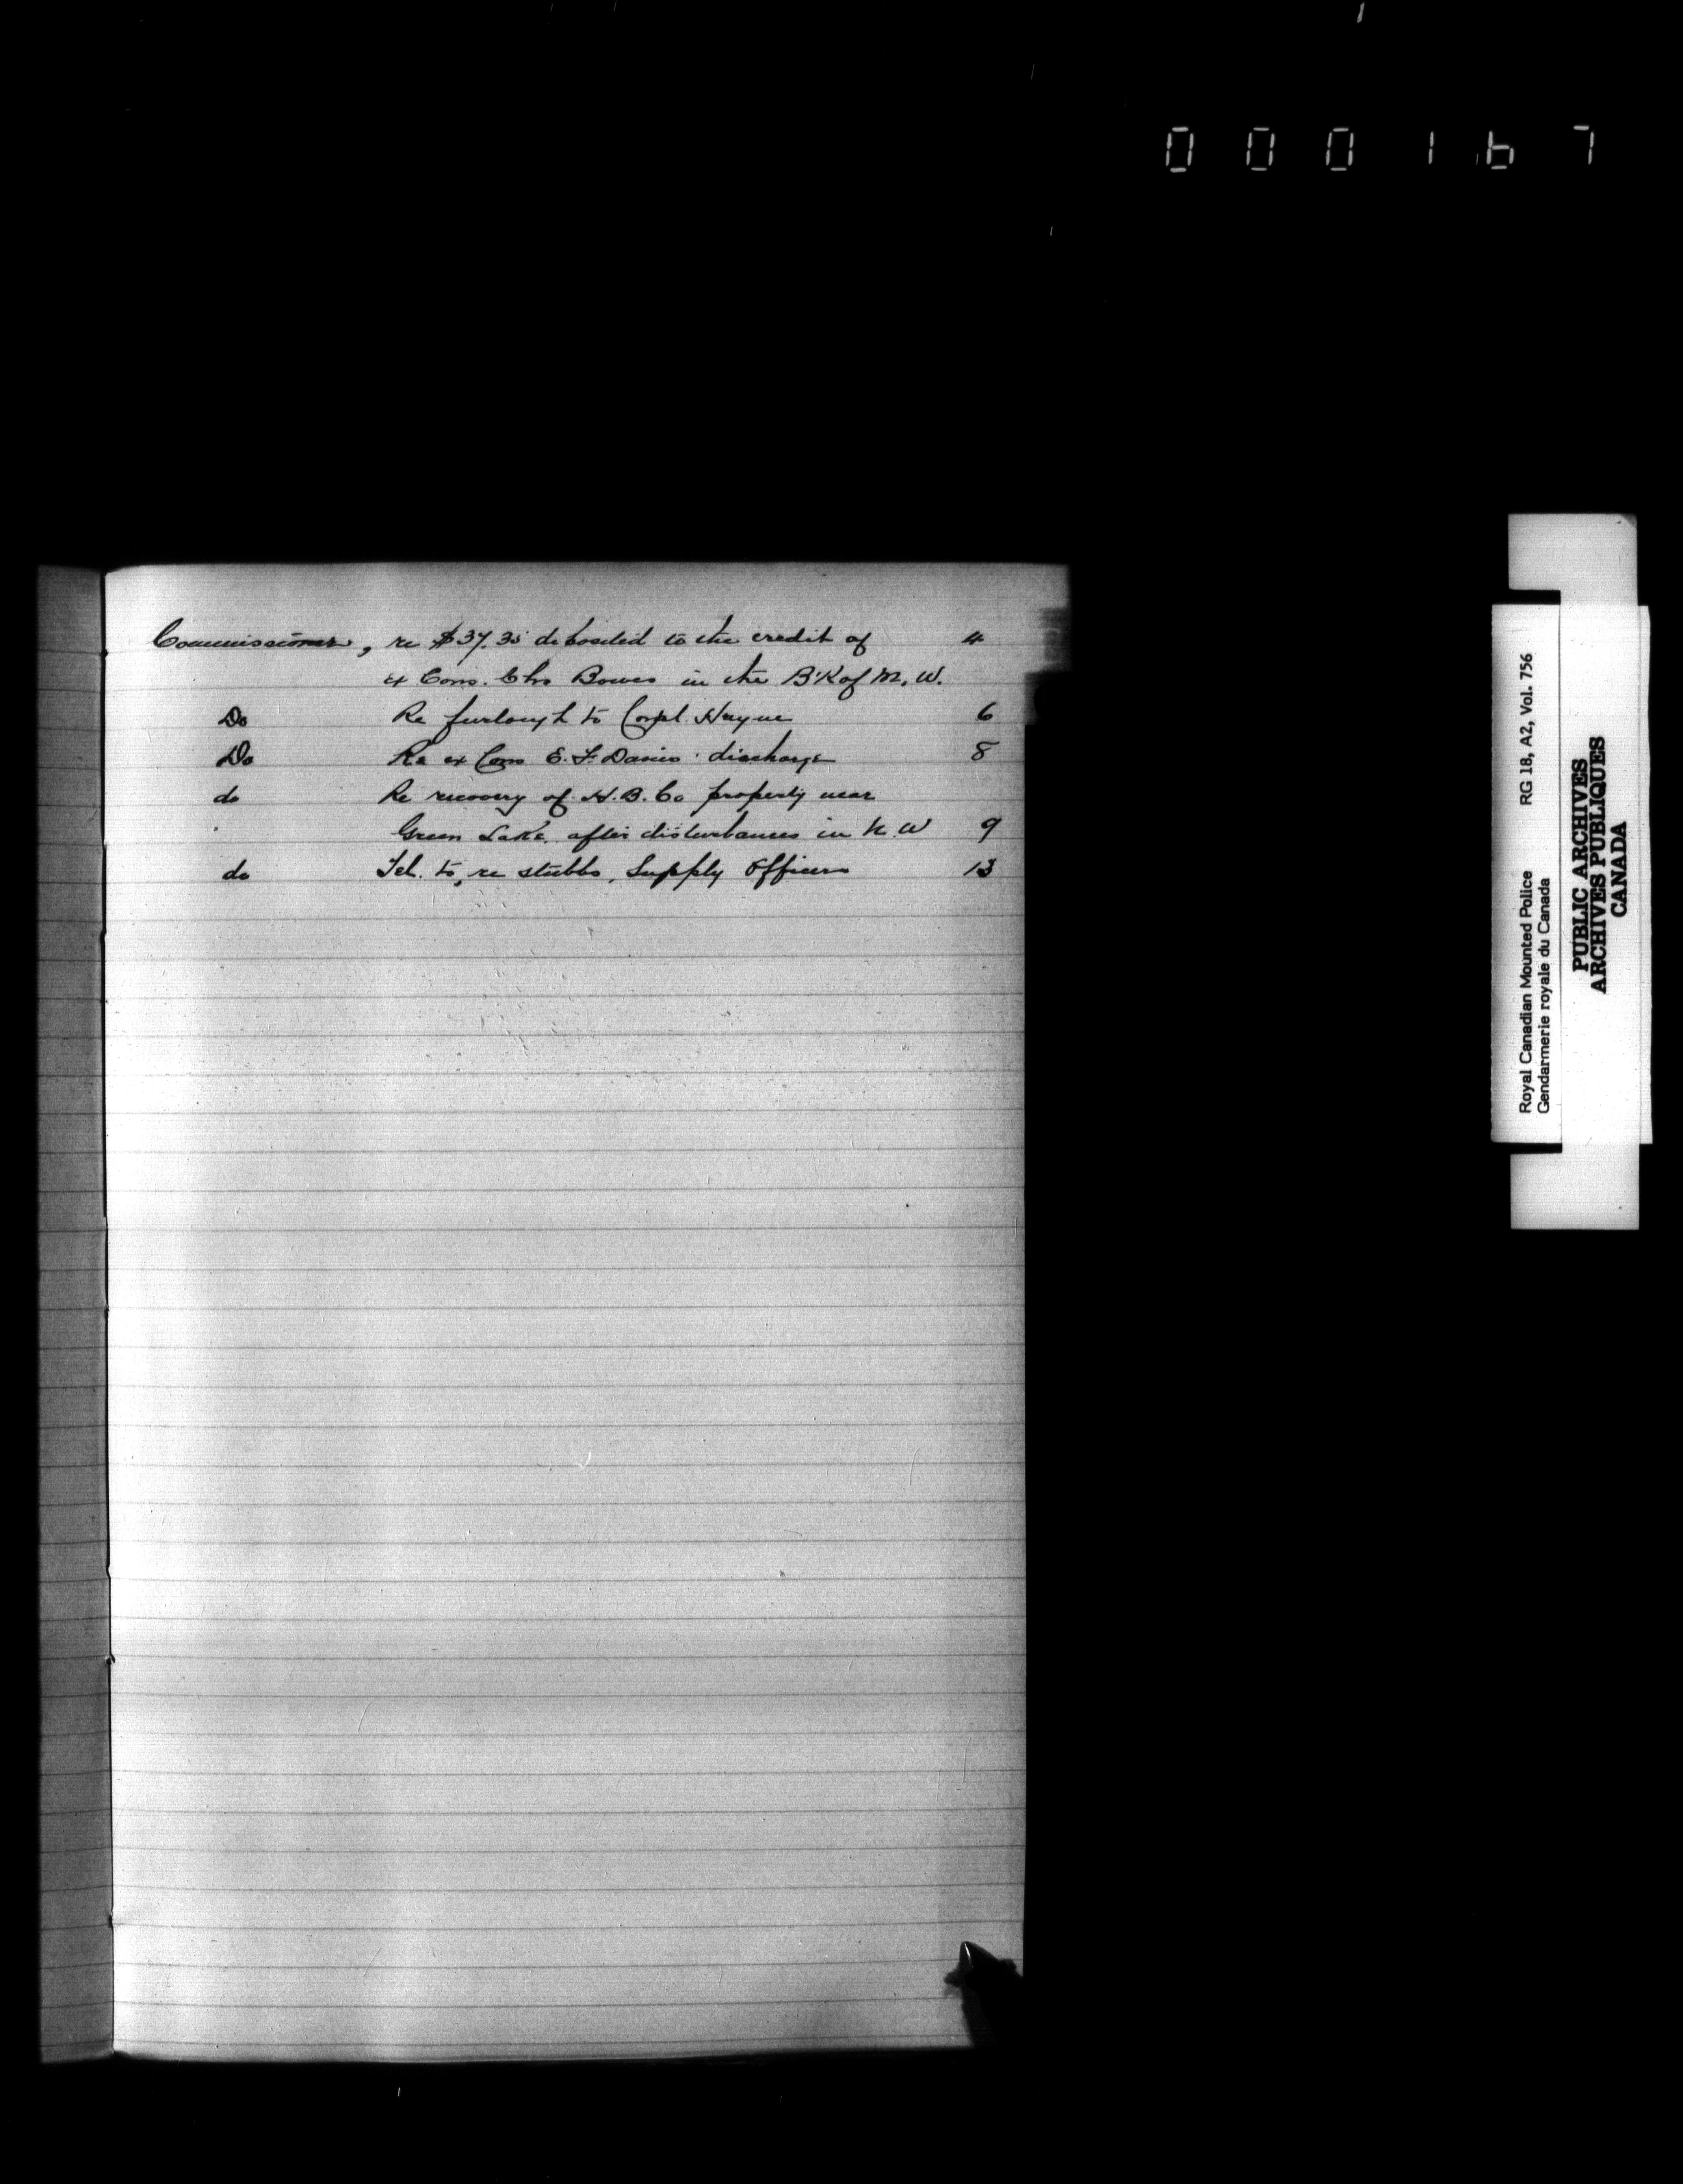 000167
Commissioner, re $37.35 deposited to the credit of 4
ex Cons. Chs Bowes in the B'K of M, W.
Do Re furlough to Corpl. Hayne 6
Do Re ex Cons E. F. Davies' discharge 8
do Re recovery of H. B. Co property near
Green Lake, after disturbances in N. W 9
do Tel. to, re Stubbs, Supply Officer 13
Royal Canadian Mounted Police RG 18, A2, Vol. 756
Gendarmerie royale du Canada
PUBLIC ARCHIVES
ARCHIVES PUBLIQUES
CANADA